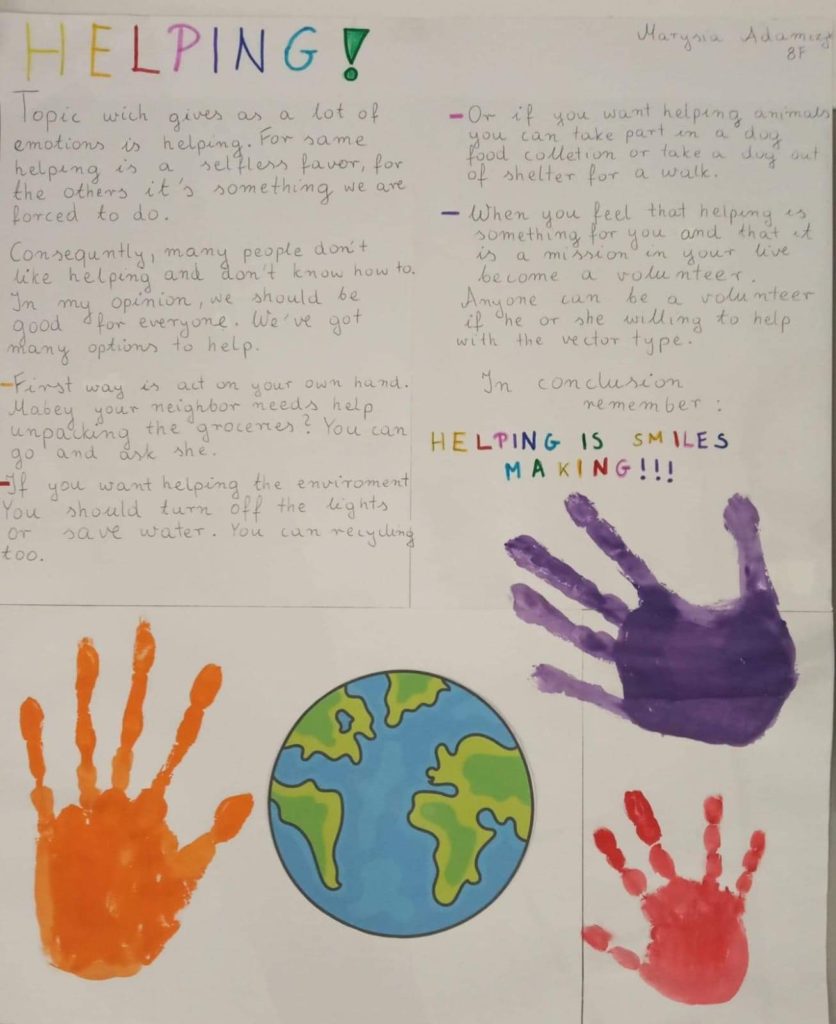 HELPING!
Marysia Adamczyk
8F
Topic wich gives as a lot of
emotions is helping. For same
helping is a selfless favor, for
the others it's something we are
forced to do.
Consequntly, many people don't
like helping and don't know how to.
In my opinion, we should be
good for everyone. We've got
many options to help.
- First way is act on your own hand.
Mabey your neighbor needs help
unpacking the groceries? You can
go and ask she.
- If you want helping the enviroment
You should turn off the lights
or save water. You can recycling
too.
- Or if you want helping animals
you can take part in a dog
food colletion or take a dog out
of shelter for a walk.
- When you feel that helping is
something for you and that it
is a mission in your live
become a volunteer.
Anyone can be a volunteer
if he or she willing to help
with the vector type.
In conclusion
remember:
HELPING IS SMILES
MAKING!!!